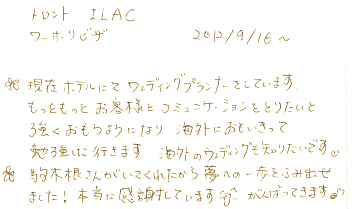 トロント ILAC
ワーホリビザ 2012/9/16〜
現在ホテルにてウェディングプランナーをしています。
もっともっとお客様とコミュニケーションをとりたいと
強くおもうようになり 海外におもいきって
勉強に行きます 海外のウェディングを知りたいです
駒木根さんがいてくれたから夢への一歩をふみ出せ
ました！本当に感謝しています がんばってきます